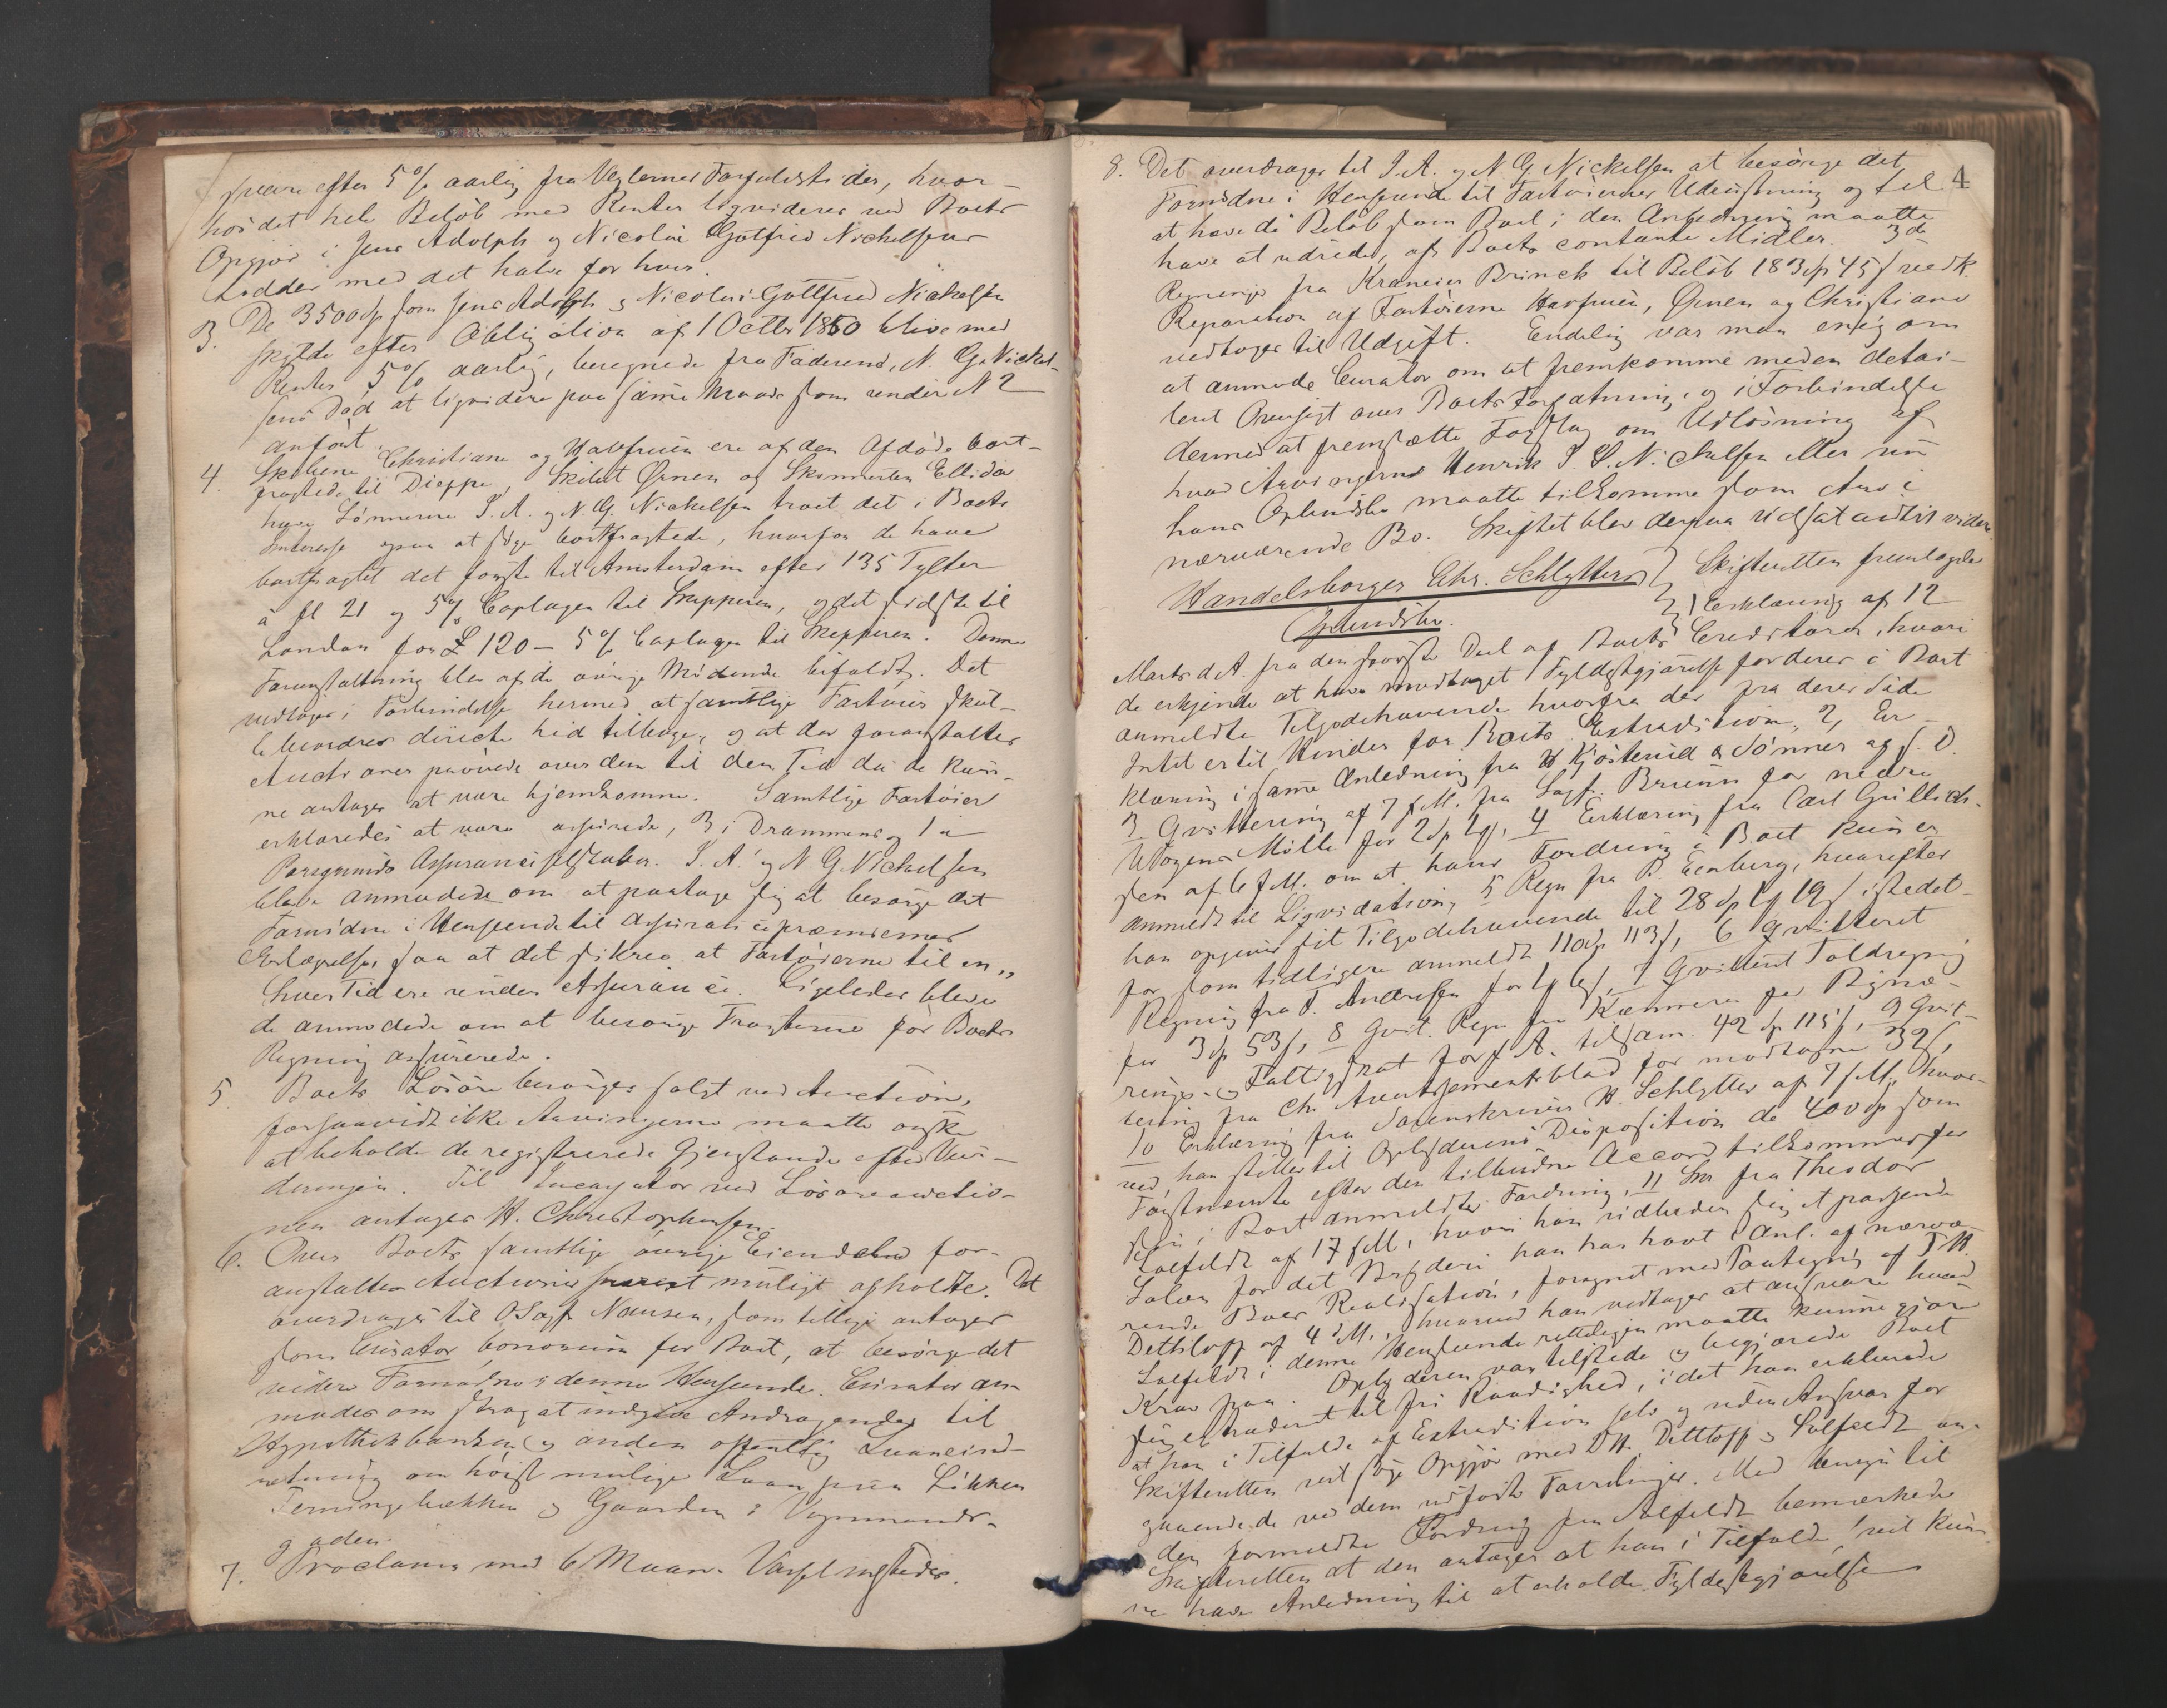 svare efter 5% aarlig fra Vexlernes Forfaldstider, hvor-
hos det hele Beløb med Renter liqvideres ved Boets
Opgjør i Jens Adolph og Nicolai Gotfried Nickelsens
Lodder med det halve for hver.
3. De 3500 Sp som Jens Adolph og Nicolai Gottfried Nickelsen
skylde efter Obligation af 1 Octbr 1850 blive med
Renter 5% aarlig, beregnede fra Faderens, N. G. Nickel-
sens Død at liqvidere paa samme Maade som under N 2
anført.
4. Skibene Christiane og Havfruen ere af den Afdøde bort-
fragtede til Dieppe, Skibet Ørnen og Skonnerten Ellida
have Sønnerne J. A. og N. G. Nickelsen troet det i Boets
Interesse ogsaa at søge bortfragtede, hvorfor de have
bortfragtet det første til Amsterdam efter 135 Tylter
à fl 21 og 5% Caplagen til Skipperen, og det sidste til
London for £ 120 – 5% Caplagen til Skipperen. Denne
Foranstaltning blev af de øvrige Mødende bifaldt. Det
vedtoges i Forbindelse hermed at samtlige Fartøier skul-
le beordres directe hid tilbage, og at der foranstaltes
Auctioner prøvede over dem til den Tid da de kun-
ne antages at være hjemkomne. Samtlige Fartøier
erklæredes at være assurerede, 3 i Drammens og 1 i
Porsgrunds Assuranceselskaber. J. A. og N. G. Nickelsen
bleve anmodede om at paatage sig at besørge det
Fornødne i Henseende til Assurancepræmiernes
Erlæggelse, saa at det sikres at Fartøierne til en-
hver Tid ere under Assurance. Ligeledes bleve
de anmodede om at besørge Fragterne for Boets
Regning assurerede.
5 Boets Løsøre besørges solgt ved Auction,
forsaavidt ikke Arvingerne maatte ønske
at beholde de registrerede Gjenstande efter Vur-
deringen. Til Incassator ved Løsøreauctio-
nen antages H. Christophersen.
6. Over Boets samtlige øvrige Eiendele for-
anstaltes Auctioner snarest muligt afholdte. Det
overdrages til OSagf. Nansen, som tillige antages
som Curator bonorum for Boet, at besørge det
videre Fornødne i denne Henseende. Curator an-
modes om strax at indgive Andragender til
Hypothekbanken og anden offentlig Laaneind-
retning om høist mulige Laan paa Løkken
Terningebækken og Gaarden i Vognmands-
gaden.
7. Proclama med 6 Maan. Varsel udstedes.
4
8. Det overdrages til J. A. og N. G. Nickelsen at besørge det
Fornødne i Henseende til Fartøiernes Udrustning og til
at have de Beløb som Boet i den Anledning maatte
have at udrede, af Boets contante Midler. 3de
Regninger fra Kræmer Brinch til Beløb 183 Sp 45 s vedk.
Reparation af Fartøierne Havfruen, Ørnen og Christiane
vedtoges til Udgift. Endelig var man enig om
at anmode Curator om at fremkomme med en detai-
leret Oversigt over Boets Forfatning, og i Forbindelse
dermed at fremsætte Forslag om Udløsning af
hvad Arvingerne Henrik J. S. Nickelsen eller nu
hans Opbudsbo maatte tilkomme som Arv i
nærværende Bo. Skiftet blev derpaa udsat indtil videre
Handelsborger Chr. Schlytters } Skifteretten fremlagde
Opbudsbo. } 1 Erklæring af 12
Marts d. A. fra den største Deel af Boets Creditorer, hvori
de erkjende at have modtaget Fyldestgjørelse for deres i Boet
anmeldte Tilgodehavende hvorfra der fra deres Side
Intet er til Hinder for Boets Extradition, 2, Er-
klæring i samme Anledning fra H Kjøsterud & Sønner og S. D.
3 Qvittering af 7 f. M. fra Sagf. Bruun for nedre
Vogens Mølle for 2 Sp 2 , 4 Erklæring fra Carl Gullich-
sen af 6 f. M. om at hans Fordring i Boet kun er
anmeldt til Liqvidation, 5 Regn fra P. Eenberg, hvorefter
han opgiver sit Tilgodehavende til 28 Sp 19 s istedet-
for som tidligere anmeldt 110 Sp 113 s, 6 Qvitteret
Regning fra T. Andresen for , 7 Qvitteret Toldregning
for 3 Sp 53 s, 8 Qvit. Regn fra Kæmneren for Rignæ-
rings- og Fattigskat for f. A. tilsam. 42 Sp 115 s, 9 Qvit-
tering fra Ch. Avertissementsblad for modtagne 32 s,
10 Erklæring fra Sorenskriver H. Schlytter af 7 f. M., hvor-
ved han stiller til Opbyderens Disposition de 400 Sp som
Førstnævnte efter den tilbudne Accord tilkommer for
sin i Boet anmeldte Fordring, 11 Skr fra Theodor
Salfeldt af 17 f. M., hvori han udbeder sig et passende
Salær for det Bryderi han har havt i Anl. af nærvæ-
rende Boes Realisation, forsynet med Paategning af T. H.
Dethloff af 4 d. M., hvorved han vedtager at ansvare hvad
Salfeldt i denne Henseende retteligen maatte kunne gjøre
Krav paa. Opbyderen var tilstede og begjærede Boet
sig extraderet til fri Raadighed, i det han erklærede
at han i Tilfælde af Extradition selv og uden Ansvar for
Skifteretten vil søge Opgjør med T. H. Dethloff og Salfeldt an-
gaaende de ved dem udførte Forretninger. Med Hensyn til
den formeldte Fordring fra Salfeldt bemærkede
Skifteretten at den antager at han i Tilfælde vil kun-
ne have Anledning til at erholde Fyldestgjørelse